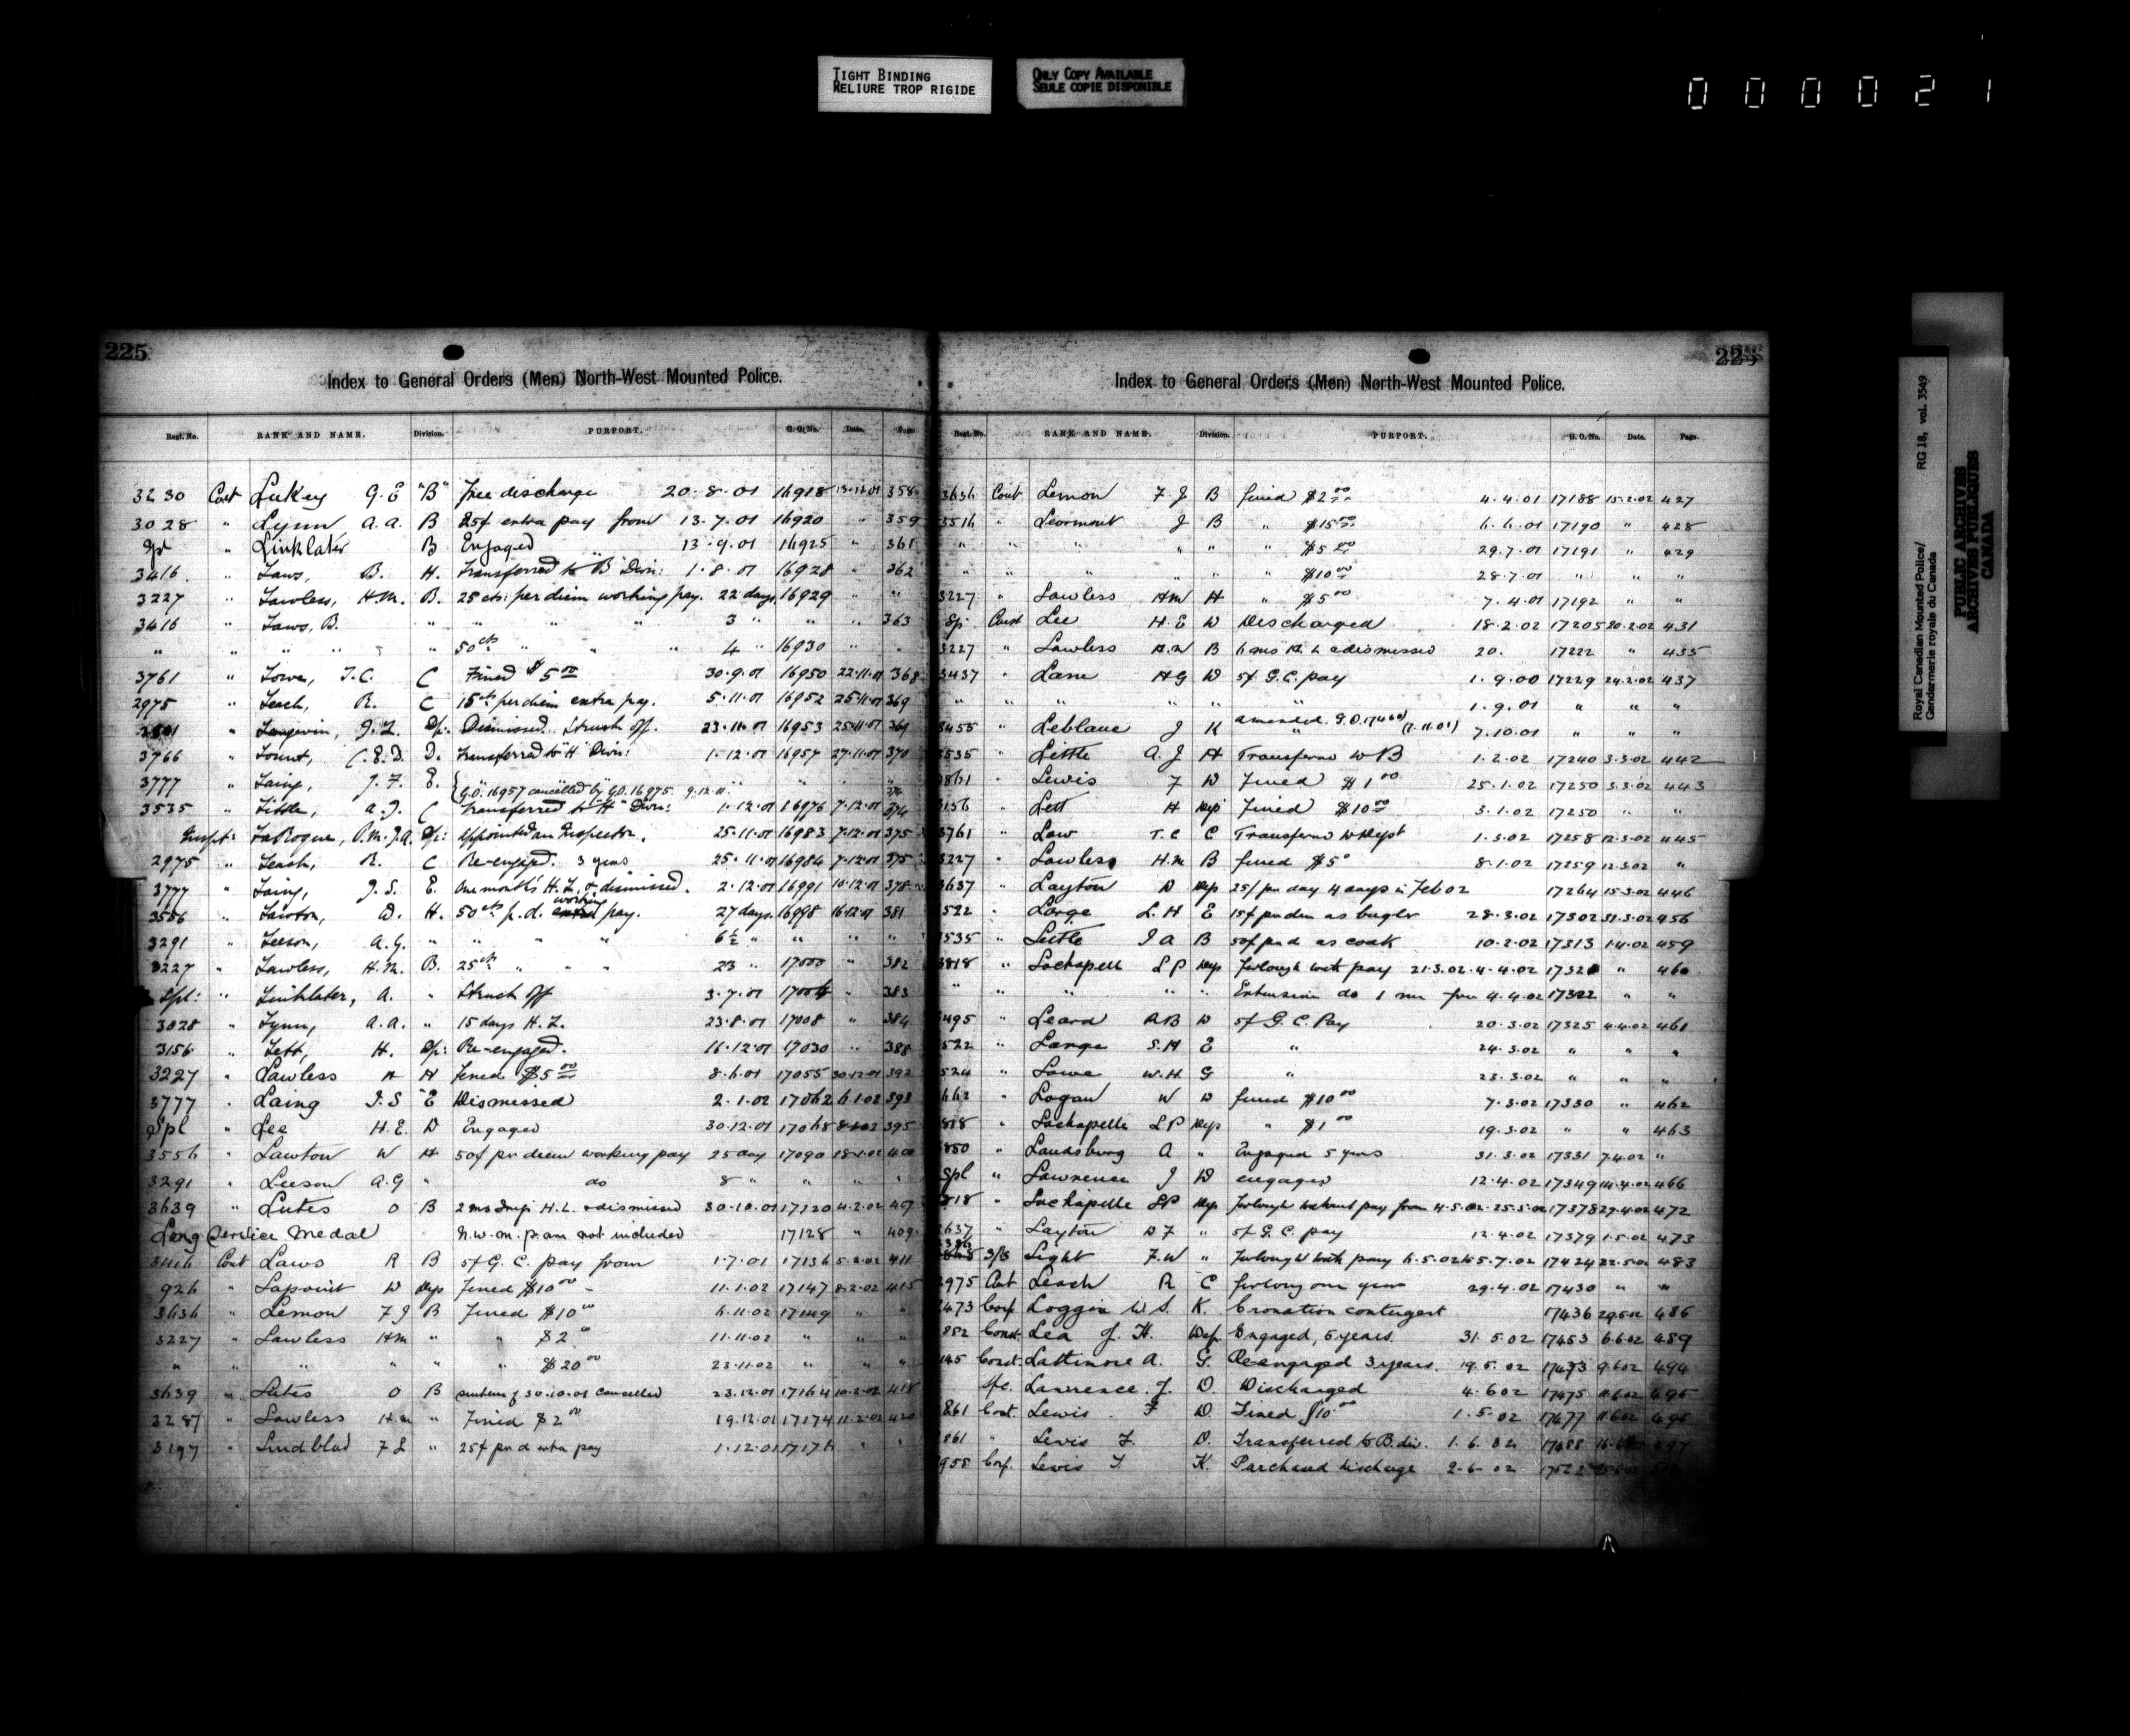 TIGHT BINDING
RELIURE TROP RIGIDE
ONLY COPY AVAILABLE
SEULE COPIE DISPONIBLE
000021
225
Index to General Orders (Men) North-West Mounted Police.
Regt. No. RANK AND NAME. Division. PURPORT. G.O. No. Date. Page
3230 Const Lukey G.E "B" Free discharge 20.8.01 16918 13.11.01 358
3028 " Lynn A.A. B 25¢ extra pay from 13.7.01 16920 " 359
Spl " Linklater B Engaged 13.9.01 16925 " 361
3416 " Laws, B. H. Transferred to "B" Divn: 1.8.01 16928 " 362
3227 " Lawless, H.M. B. 25 cts. per diem working pay. 22 days 16929 " "
3416 " Laws, B. " " " " " 3 " " " 363
" " " " " 50 cts " " " 4 " 16930 " "
3761 " Lowe, T.C. C Fined $5 00 30.9.01 16950 22.11.01 368
2975 " Leach, R. C 15 cts per diem extra pay. 5.11.01 16952 25.11.01 369
" Langevin, J.L. Dp: Dismissed. Struck off. 23.11.01 16953 25.11.01 369
3766 " Lount, C.E.D. D. Transferred to "H" Divn: 1.12.01 16957 27.11.01 370
3777 " Laing, J.F. E. { " " " " "
G.O. 16957 cancelled by G.O. 16975. 9.12.01
3535 " Little, A.J. C Transferred to "H" Divn: 1.12.01 16976 7.12.01 374
Inspt: LaRogue, P.M.J.A. Dp: Appointed an Inspector. 25.11.01 16983 7.12.01 375
2975 " Leach, R. C Re-engaged. 3 years 25.11.01 16984 7.12.01 375
3777 " Laing, J.S. E. One month's H.L. & dismissed. 2.12.01 16991 10.12.01 378
3556 " Lawton, W. H. 50 cts p.d. working pay. 27 days. 16998 16.12.01 381
3291 " Leeson, A.G. " " " " 6½ " " " "
3227 " Lawless, H.M. B. 25 cts " " " 23 " 17000 " 382
Spl: " Linklater, A. " Struck off 3.7.01 17004 " 383
3028 " Lynn, A.A. " 15 days H.L. 23.8.01 17008 " 384
3156 " Lett, H. Dp: Re-engaged. 16.12.01 17030 " 388
3227 " Lawless H H Fined $5 00 8.6.01 17055 30.12.01 392
3777 " Laing J.S "E Dismissed 2.1.02 17062 6.1.02 393
Spl " Lee H.E. D Engaged 30.12.01 17068 395
3556 " Lawton W H 50¢ per diem working pay 25 day 17090 18.1.02 400
3291 " Leeson A.G " do 8 " " " "
3639 " Lutes O B 2 mo Impr H.L. & dismissed 30.10.01 17120 4.2.02 407
Long Service Medal N.W.M.P. are not included 17128 " 409
3416 Const Laws R B 5¢ G.C. pay from 1.7.01 17136 5.2.02 411
926 " Lapoint W Dep Fined $10 00 11.1.02 17147 8.2.02 415
3636 " Lemon F J B Fined $10 00 6.11.02 17149 " "
3227 " Lawless HM " " $2 00 11.11.02 " " "
" " " " " " $20 00 23.11.02 " " "
3639 " Lutes O B sentence of 30.10.01 cancelled 23.12.01 17164 10.2.02 418
3287 " Lawless H.M " Fined $2 00 19.12.01 17174 11.2.02 420
3197 " Lindblad F L " 25¢ per d extra pay 1.12.01 17176 " "
225
Index to General Orders (Men) North-West Mounted Police.
Regt. No. RANK AND NAME. Division. PURPORT. G.O. No. Date. Page.
3636 Const Lemon F J B fined $2 00 4.4.01 17188 15.2.02 427
3516 " Leormont J B " $15 00 6.6.01 17190 " 428
" " " " " " $5 00 29.7.01 17191 " 429
" " " " " " $10 00 28.7.01 " " "
3227 " Lawless HM H " $5 00 7.4.01 17192 " "
Sp: Const Lee H.E D Discharged 18.2.02 17205 20.2.02 431
3227 " Lawless H.M B 6 mos H.L & dismissed 20. 17222 " 435
3437 " Lane HG D 5¢ G.C. pay 1.9.00 17229 24.2.02 437
" " " " " " 1.9.01 " " "
3455 " Leblanc J K amended. G.O. 17460 (7.11.01) " 7.10.01 " " "
3535 " Little A.J H Transferred to B 1.2.02 17240 3.3.02 442
3861 " Lewis F D Fined $1 00 25.1.02 17250 3.3.02 443
3156 " Lett H Dep Fined $10 00 3.1.02 17250 " "
3761 " Low T.C C Transferred to Depot 1.3.02 17258 12.3.02 445
3227 " Lawless H.M B fined $5 0 8.1.02 17259 12.3.02 "
3637 " Layton D Dep 25/ per day 4 days in Feb 02 17264 15.3.02 446
522 " Large L.H E 15¢ per diem as bugler 28.3.02 17302 31.3.02 456
3535 " Little J A B 50¢ per d as cook 10.2.02 17313 1.4.02 459
3818 " Lachapell L P Dep Furlough with pay 21.3.02.4.4.02 1732 " 460
" " " " " Extension do 1 from 4.4.02 17322 " "
3495 " Leard A B D 5¢ G.C. Pay 20.3.02 17325 4.4.02 461
522 " Large S.H E " 24.3.02 " " "
524 " Lowe W.H G " 23.3.02 " " "
662 " Logan W D fined $10 00 7.3.02 17330 " 462
818 " Lachapelle L P Dep " $1 00 19.3.02 " " 463
850 " Landsburg A " Engaged 5 years 31.3.02 17331 7.4.02 "
Spl " Lawrence J D engaged 12.4.02 17349 14.4.02 466
818 " Lachapelle LP Dep Furlough without pay from 4.5.02.25.5.02 17378 27.4.02 472
3637 " Layton D F " 5¢ G.C. pay 12.4.02 17379 1.5.02 473
S/S Light F.W " Furlough with pay 6.5.02 to 5.7.02 17424 22.5.02 483
2975 Const Leach R C furlong one year 29.4.02 17430 " "
2473 Corp. Loggin W S. K. Cronation contingent 17436 29.5.02 486
852 Const. Lea J. H. Dep. Engaged, 5 years. 31.5.02 17453 6.6.02 489
145 Const. Lattimore A. G. Re-engaged 3 years. 19.5.02 17473 9.6.02 494
Spc. Lawrence. J. D. Discharged 4.6.02 17475 11.6.02 495
861 Const. Lewis. F D. Fined $10 00 1.5.02 17477 11.6.02 495
861 " Lewis F. D. Transferred to B. div. 1.6.02 17488
955 Corp. Lewis T. K. Purchased discharge 2-6-02
Royal Canadian Mounted Police/
Gendarmerie royale du Canada
RG 18, vol. 3549
PUBLIC ARCHIVES
ARCHIVES PUBLIQUES
CANADA